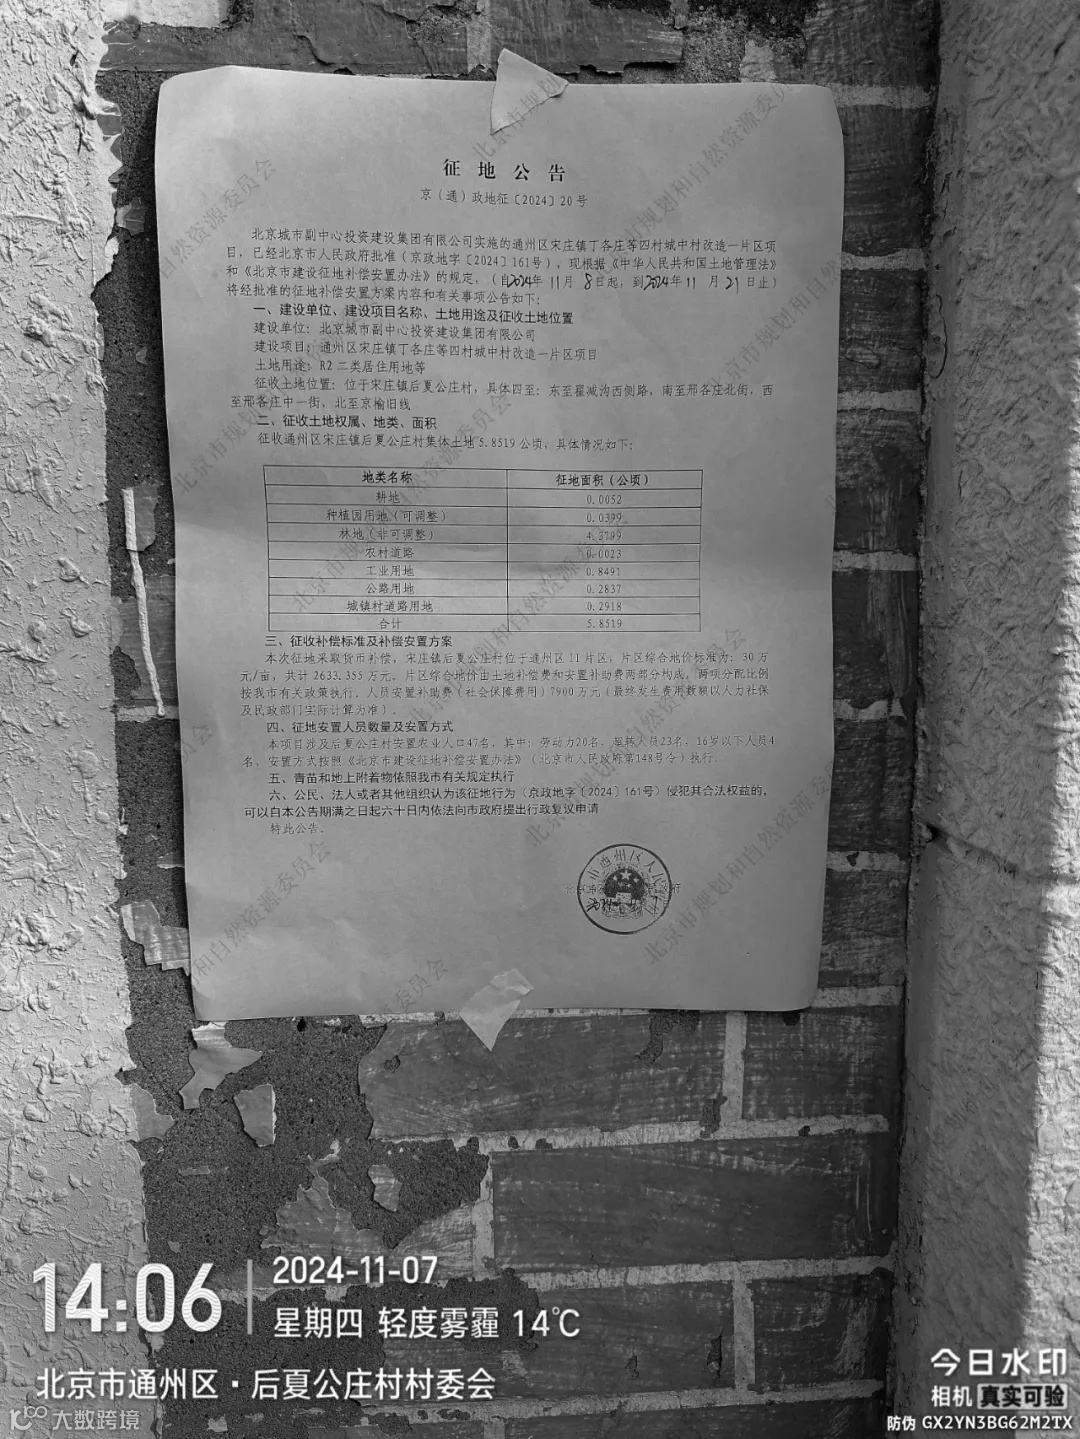 征地公告
京（通）政地征〔2024〕20号
北京城市副中心投资建设集团有限公司实施的通州区宋庄镇丁各庄等四村城中村改造一片区项
目，已经北京市人民政府批准（京政地字〔2024〕161号），现根据《中华人民共和国土地管理法》
和《北京市建设征地补偿安置办法》的规定，（自2024年11月8日起，到2024年11月21日止）
将经批准的征地补偿安置方案内容和有关事项公告如下：
一、建设单位、建设项目名称、土地用途及征收土地位置
建设单位：北京城市副中心投资建设集团有限公司
建设项目：通州区宋庄镇丁各庄等四村城中村改造一片区项目
土地用途：R2二类居住用地等
征收土地位置：位于宋庄镇后夏公庄村，具体四至：东至翟减沟西侧路，南至邢各庄北街，西
至邢各庄中一街，北至京榆旧线
二、征收土地权属、地类、面积
征收通州区宋庄镇后夏公庄村集体土地5.8519公顷，具体情况如下：
地类名称 征地面积（公顷）
耕地 0.0052
种植园用地（可调整） 0.0399
林地（非可调整） 4.3799
农村道路 0.0023
工业用地 0.8491
公路用地 0.2837
城镇村道路用地 0.2918
合计 5.8519
三、征收补偿标准及补偿安置方案
本次征地采取货币补偿，宋庄镇后夏公庄村位于通州区11片区，片区综合地价标准为：30万
元/亩，共计2633.355万元。片区综合地价由土地补偿费和安置补助费两部分构成，两项分配比例
按我市有关政策执行。人员安置补助费（社会保障费用）7900万元（最终发生费用数额以人力社保
及民政部门实际计算为准）。
四、征地安置人员数量及安置方式
本项目涉及后夏公庄村安置农业人口47名，其中：劳动力20名，超转人员23名，16岁以下人员4
名。安置方式按照《北京市建设征地补偿安置办法》（北京市人民政府第148号令）执行。
五、青苗和地上附着物依照我市有关规定执行
六、公民、法人或者其他组织认为该征地行为（京政地字〔2024〕161号）侵犯其合法权益的，
可以自本公告期满之日起六十日内依法向市政府提出行政复议申请
特此公告。
北京市规划和自然资源委员会
14:06
2024-11-07
星期四 轻度雾霾 14℃
北京市通州区·后夏公庄村村委会
大数跨境
今日水印
相机 真实可验
防伪 GX2YN3BG62M2TX